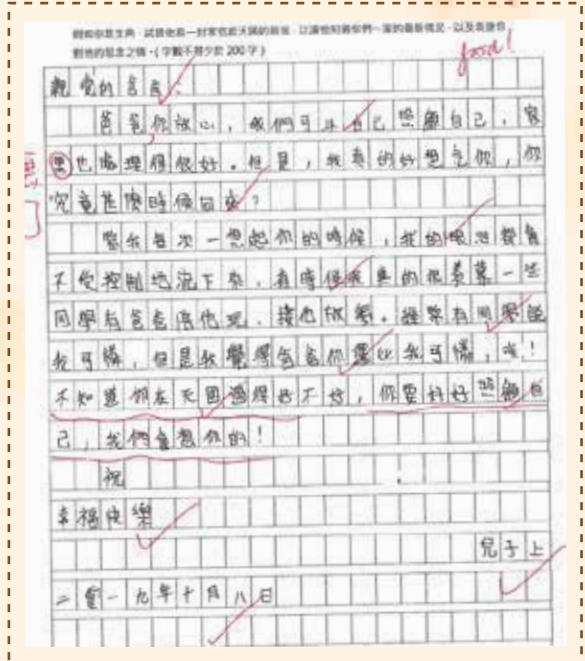 假如你是主角,試替他寫一封家書給天國的爸爸,以讓他知道你們一家的最新情況,以及表達你
對他的思念之情。(字數不得少於 200 字)
good!
親愛的爸爸:
爸爸,你放心,我們可以自己照顧自己,家
裏也處理得很好。但是,我真的好想念你,你
究竟甚麼時候回來?
當我每次一想起你的時候,我的眼淚都會
不受控制地流下來,有時候我真的很羨慕一些
同學有爸爸陪他玩、接他放學。經常有同學說
我可憐,但是我覺得爸爸你還比我可憐,唉!
不知道你在天國過得好不好,你要好好照顧自
己,我們會想你的!
祝
幸福快樂
兒子上
二零一九年十月八日